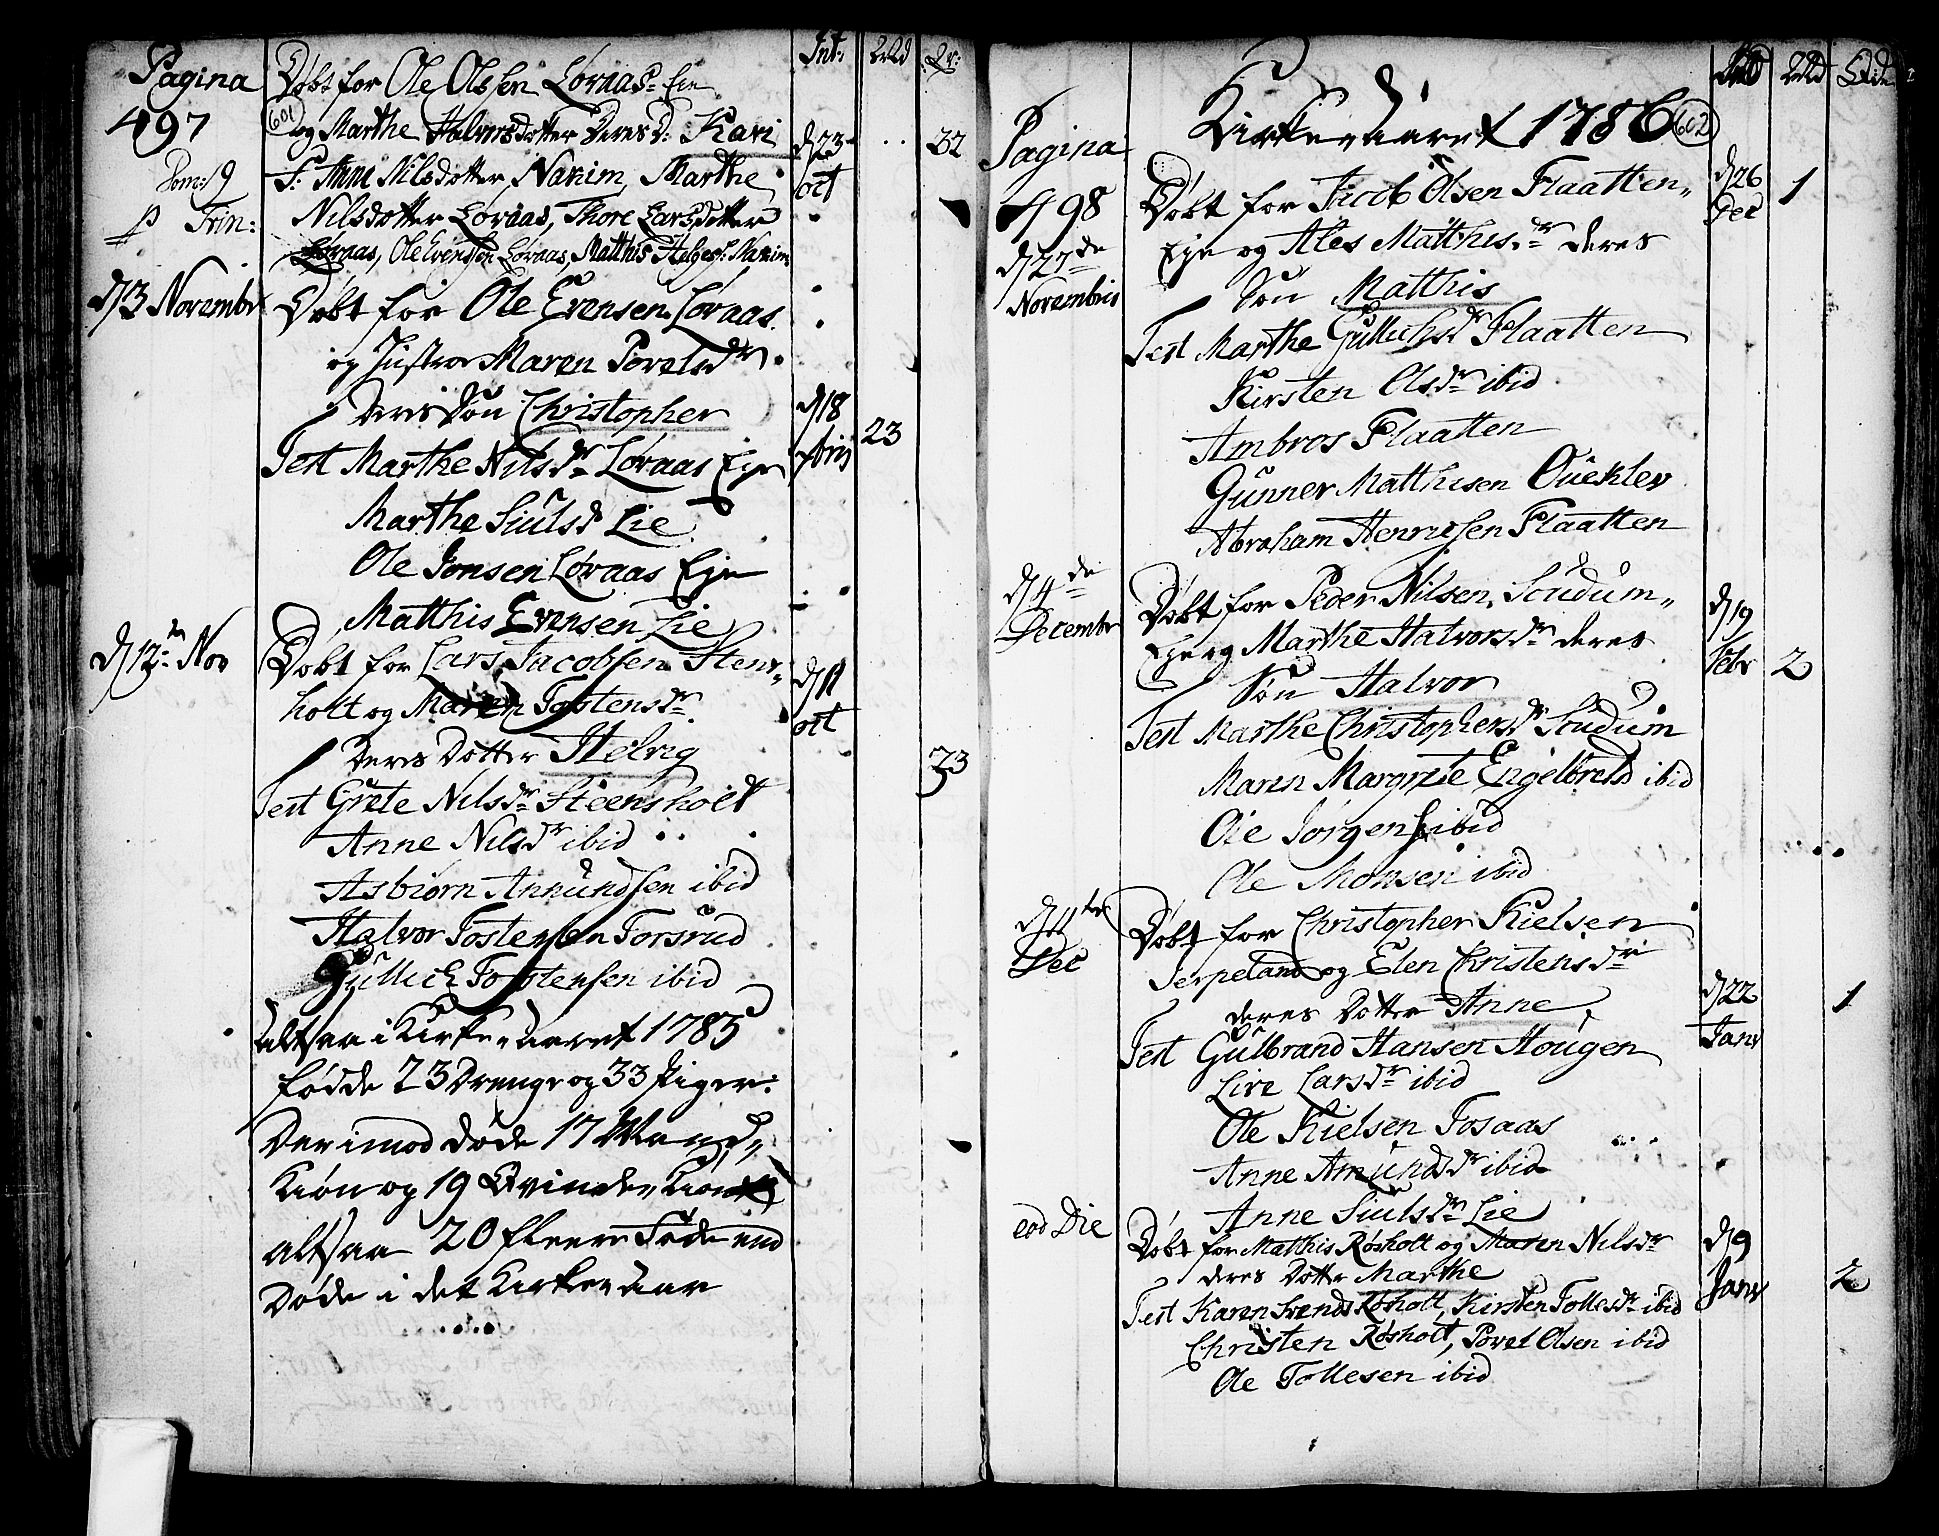 Pagina
497
Dom: 9
p Trin:
Int:
Døbt for Ole Olssen Løraas-Eie
601
og Marthe Halversdotter Deres D: Kari
d 23
oct
32
T: Anne Nilsdotter Nanim, Marthe
Nilsdotter Løraas, Thore Larsdotter
Løraas, Ole Evensen Løraas, Matthis Helges: Nanim
d 13 Novembr
Døbt for Ole Evensen Løraas
og Hustroe Maren Povelsdr
Deres Søn Christopher
d 18
23
Test Marthe Nilsdr Løraas Eje
Marthe Siulsd Lie
Ole Jonsen Løraas Eje
Matthis Evensen Lie
d 12te Nov
Døbt for Lars Jacobsen Stens-
holt og Maren Tostensdr
d 11
oct
Deres Dotter Helvig
33
Test Grete Nilsdr Steensholt
Anne Nilsdr ibid
Asbiørn Annundsen ibid
Halvor Tostensen Forsrud
Gullich Tostensen ibid
altsaa i Kirke-aaret 1785
fødde 23 Drenge og 33 Piger:
Derimod døde 17 Mand-
Kiøn og 19 Qvinde-Kiøn
altsaa 20 fleere Føde end
Døde i det Kirke-aar
Kirke-aaret 1786
602
Pagina
498
d 27de
Novembris
Døbt for Jacob Olsen Flaatten-
Eje og Ales Matthisdr deres
d 26
Dec
1
Søn Matthis
Test Marthe Gullichsdr Flaatten
Kirsten Olsdr ibid
Ambros Flaatten
Gunner Matthisen Ouekler
Abraham Henrichsen Flaatten
d 4de
Decembr
Døbt for Peder Nilsen Scudum-
Eje og Marthe Halvorsdr deres
d 19
Febr
2
Søn Halvor
Test Marthe Christophersdr Scudum
Maren Margrete Engelbretsd ibid
Ole Jorgens ibid
Ole Monsen ibid
d 11te
Dec
Døbt for Christopher Kielsen
Serpeland og Elen Christensdr
d 22
Janv
1
deres Dotter Anne
Test Gulbrand Hansen Hougen
Live Larsdr ibid
Ole Kielsen Fosaas
Anne Amundsdr ibid
Anne Siulsdr Lie
eod Die
Døbt for Matthis Røsholt og Maren Nilsdr
d 9
Janv
2
deres Dotter Marthe
Test Karen Svends Røsholt, Kirsten Tollesdr ibid
Christen Røsholt, Povel Olsen ibid
Ole Tollesen ibid